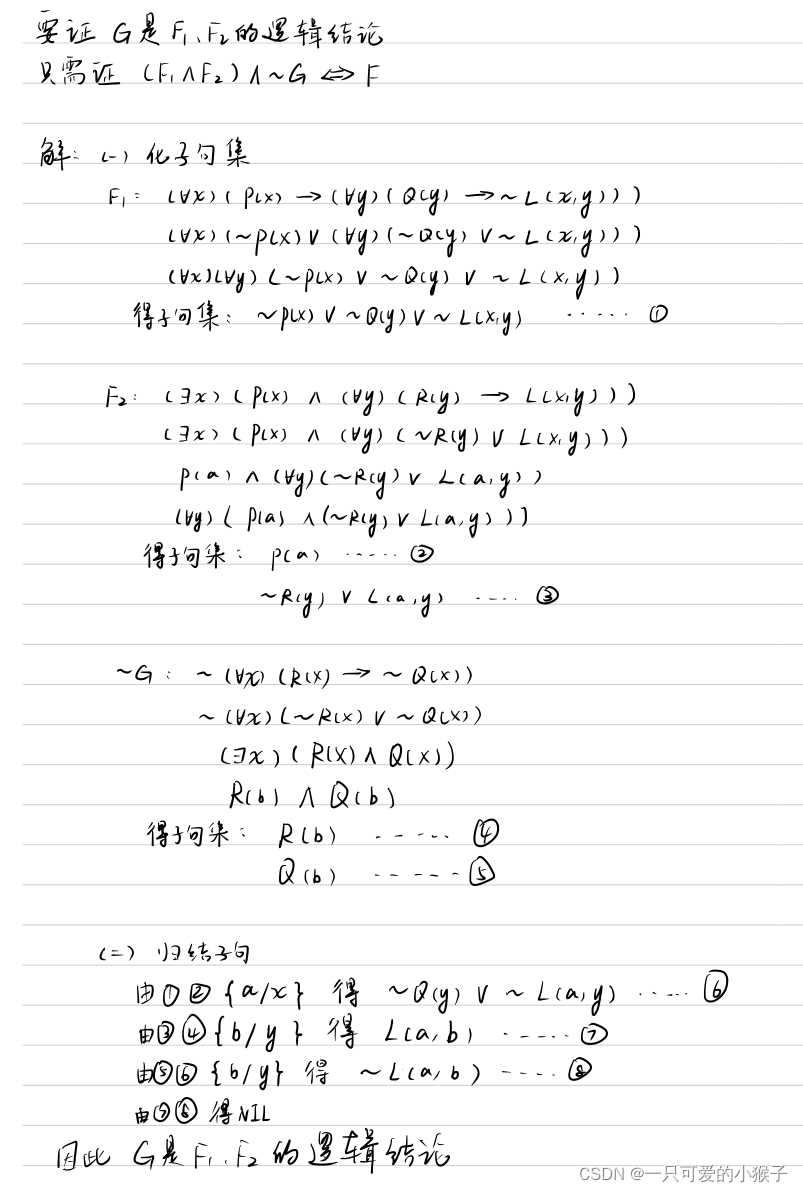 要证 G是 F₁、F₂的逻辑结论
只需证 (F₁∧F₂)∧~G ⇔ F
解: (一) 化子句集
F₁: (∀x)(P(x)→(∀y)(Q(y)→~L(x,y)))
(∀x)(~P(x)∨(∀y)(~Q(y)∨~L(x,y)))
(∀x)(∀y)(~P(x)∨~Q(y)∨~L(x,y))
得子句集: ~P(x)∨~Q(y)∨~L(x,y) ······ ①
F₂: (∃x)(P(x)∧(∀y)(R(y)→L(x,y)))
(∃x)(P(x)∧(∀y)(~R(y)∨L(x,y)))
P(a)∧(∀y)(~R(y)∨L(a,y))
(∀y)(P(a)∧(~R(y)∨L(a,y))]
得子句集: P(a) ······ ②
~R(y)∨L(a,y) ····· ③
~G: ~(∀x)(R(x)→~Q(x))
~(∀x)(~R(x)∨~Q(x))
(∃x)(R(x)∧Q(x))
R(b)∧Q(b)
得子句集: R(b) ······ ④
Q(b) ······ ⑤
(二) 归结子句
由①②{a/x} 得 ~Q(y)∨~L(a,y) ····· ⑥
由③④{b/y} 得 L(a,b) ······ ⑦
由⑤⑥{b/y} 得 ~L(a,b) ····· ⑧
由⑦⑧ 得NIL
因此 G是F₁、F₂ 的逻辑结论
CSDN @一只可爱的小猴子